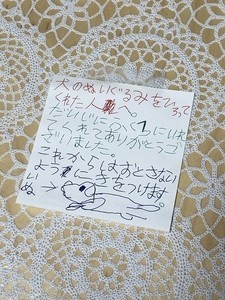 犬のぬいぐるみをひろって
くれた人へ。
だいじにふくろにいれ
てくれてありがとうご
ざいました。
これからはおとさない
ように気をつけます。
いぬ→